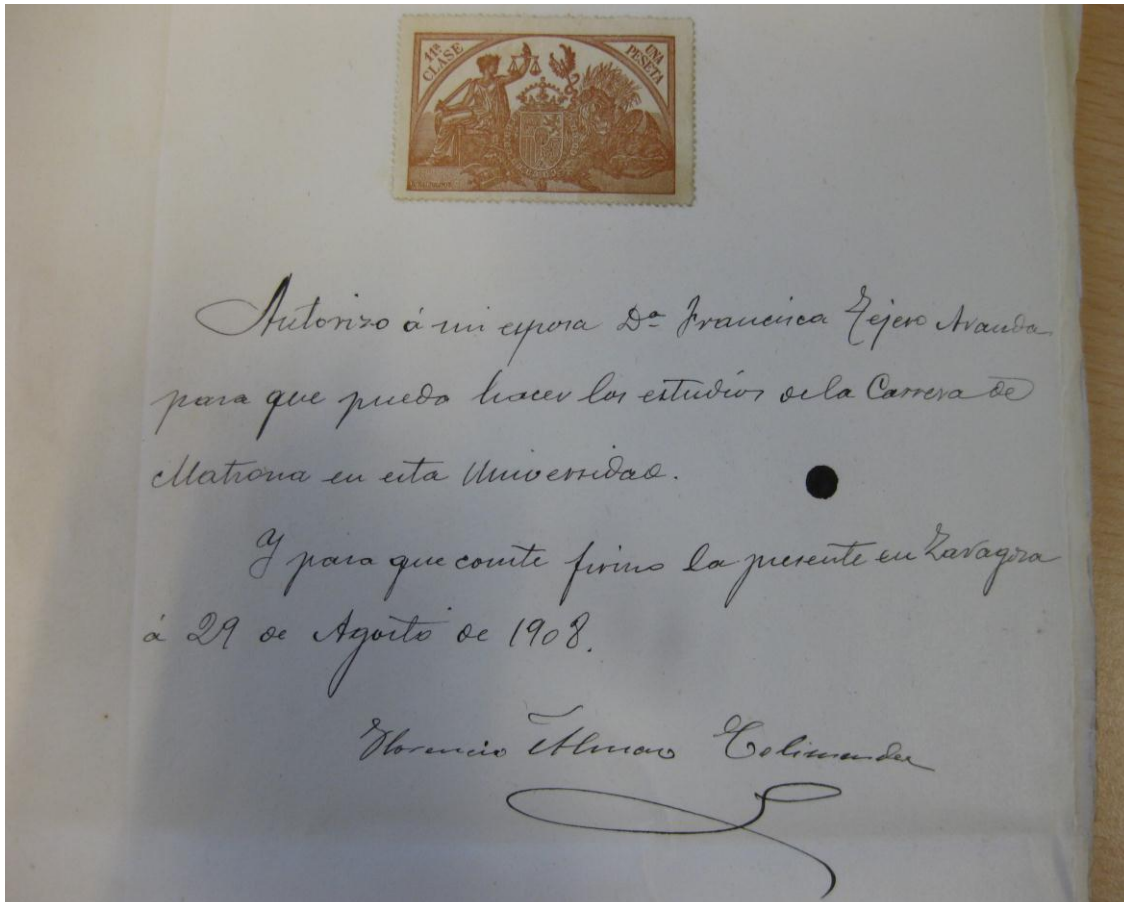 11ª CLASE
UNA PESETA
Autorizo á mi esposa Dª Francisca Tejero Aranda
para que pueda hacer los estudios de la Carrera de
Matrona en esta Universidad.
Y para que conste firmo la presente en Zaragoza
á 29 de Agosto de 1908.
Florencio